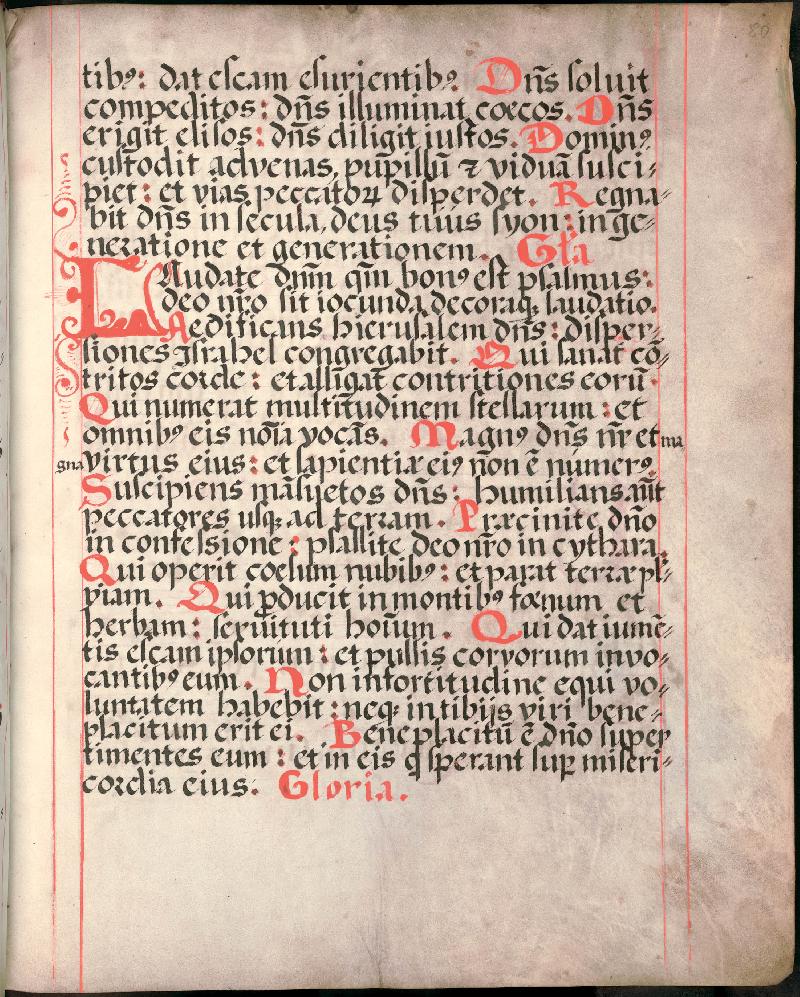 80
tibꝰ: dat escam esurientibꝰ. Dn̄s soluit
compeditos: dn̄s illuminat cœcos. Dn̄s
erigit elisos: dn̄s diligit iustos. Dominꝰ
custodit advenas, pupillū ⁊ viduā susci⸗
piet: et vias peccatoꝝ disperdet. Regna⸗
bit dn̄s in secula, deus tuus syon: in ge⸗
neratione et generationem. Gl̄a
LAudate dn̄m qm̄ bonꝰ est psalmus:
deo nr̄o sit iocunda decoraqꝫ laudatio.
Aedificans hierusalem dn̄s: disper⸗
siones Israhel congregabit. Qui sanat cō⸗
tritos corde: et alligat contritiones eorū.
Qui numerat multitudinem stellarum: et
omnibꝰ eis noīa vocās. Magnꝰ dn̄s nr̄ et ma
gna virtus eius: et sapientiæ eiꝰ non ē numerꝰ.
Suscipiens māsuetos dn̄s: humilians aūt
peccatores usqꝫ ad terram. Præcinite dn̄o
in confessione: psallite deo nr̄o in cythara.
Qui operit coelum nubibꝰ: et parat terræ pl⸗
viam. Qui ꝓducit in montibꝰ fœnum et
herbam: servituti hoīum. Qui dat iumē⸗
tis escam ipsorum: et pullis corvorum invo⸗
cantibꝰ eum. Non in fortitudine equi vo⸗
luntatem habebit: neqꝫ in tibijs viri bene⸗
placitum erit ei. Beneplacitū ē dn̄o super
timentes eum: et in eis q̄ sperant suꝑ miseri⸗
cordia eius. Gloria.